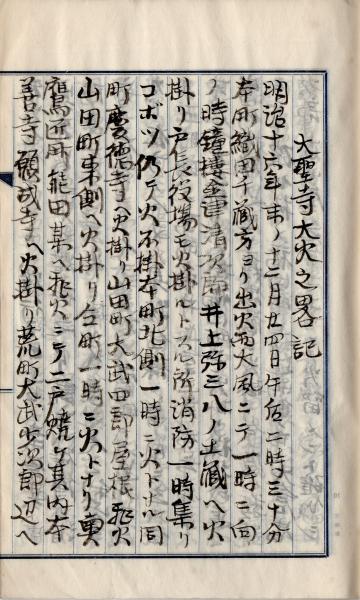 大聖寺大火之畧記
明治十六年末ノ十二月廿四日午后二時三十分
本町織田平藏方ヨリ出火西大風ニテ一時ニ向
ノ時鐘樓 津清次郎井上弥三八ノ土藏ヘ火
掛リ戸長役場モ火掛ルトスル所消防一時集リ
コボツ仍テ火不掛本町北側一時ニ火トナル同
町慶徳寺ヘ火掛リ山田町大武四郎屋根飛火
山田町東側ヘ火掛リ 町一時ニ火トナリ
鷹匠町能田某ヘ飛火ニテ二戸焼ケ其内本
善寺願成寺ヘ火掛リ荒町大武 次郎辺ヘ